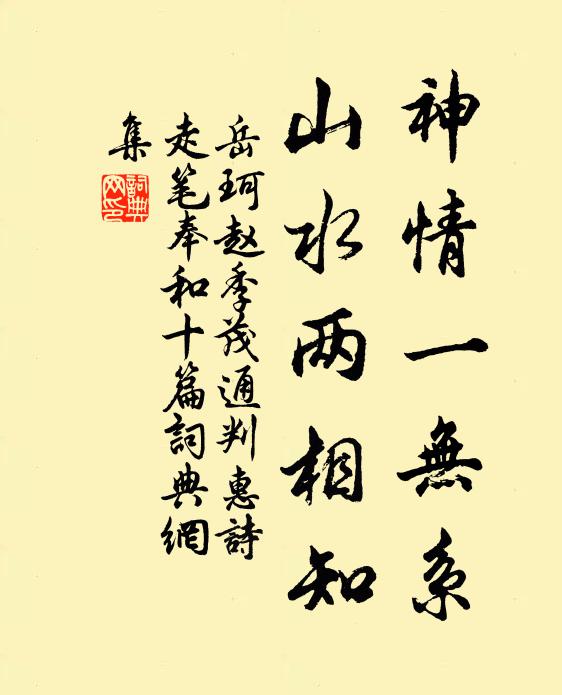 神情一無系
山水两相知
岳珂赵季茂通判惠詩
走笔奉和十篇詞典網
集
詞典网印